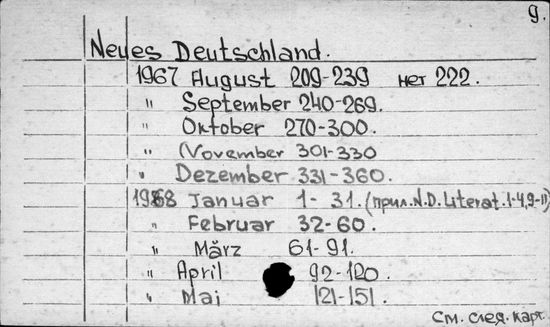 9.
Neues Deutschland.
1967 August 209-239 нет 222.
" September 240-269.
" Oktober 270-300.
" November 301-330
" Dezember 331-360.
1968 Januar 1-31. (прил. N.D. Literat. 1-4, 9-11)
" Februar 32-60.
" März 61-91.
" April 92-120.
" Mai 121-151.
См. след. карт.